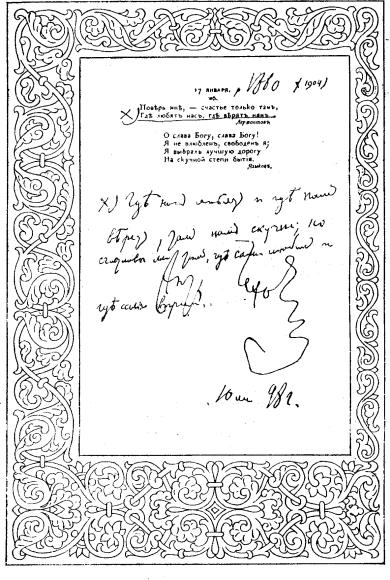 17 ЯНВАРЯ. † 1904)
х) Повѣрь мнѣ, — счастье только тамъ,
Гдѣ любятъ насъ, гдѣ вѣрятъ намъ.
Лермонтовъ.
О слава Богу, слава Богу!
Я не влюбленъ, свободенъ я;
Я выбралъ лучшую дорогу
На скучной степи бытія.
Языковъ.
х) Гдѣ насъ любятъ и гдѣ намъ
вѣрятъ, тамъ намъ скучно; но
счастливы мы тамъ, гдѣ сами любимъ и
гдѣ сами вѣримъ..
98 г.